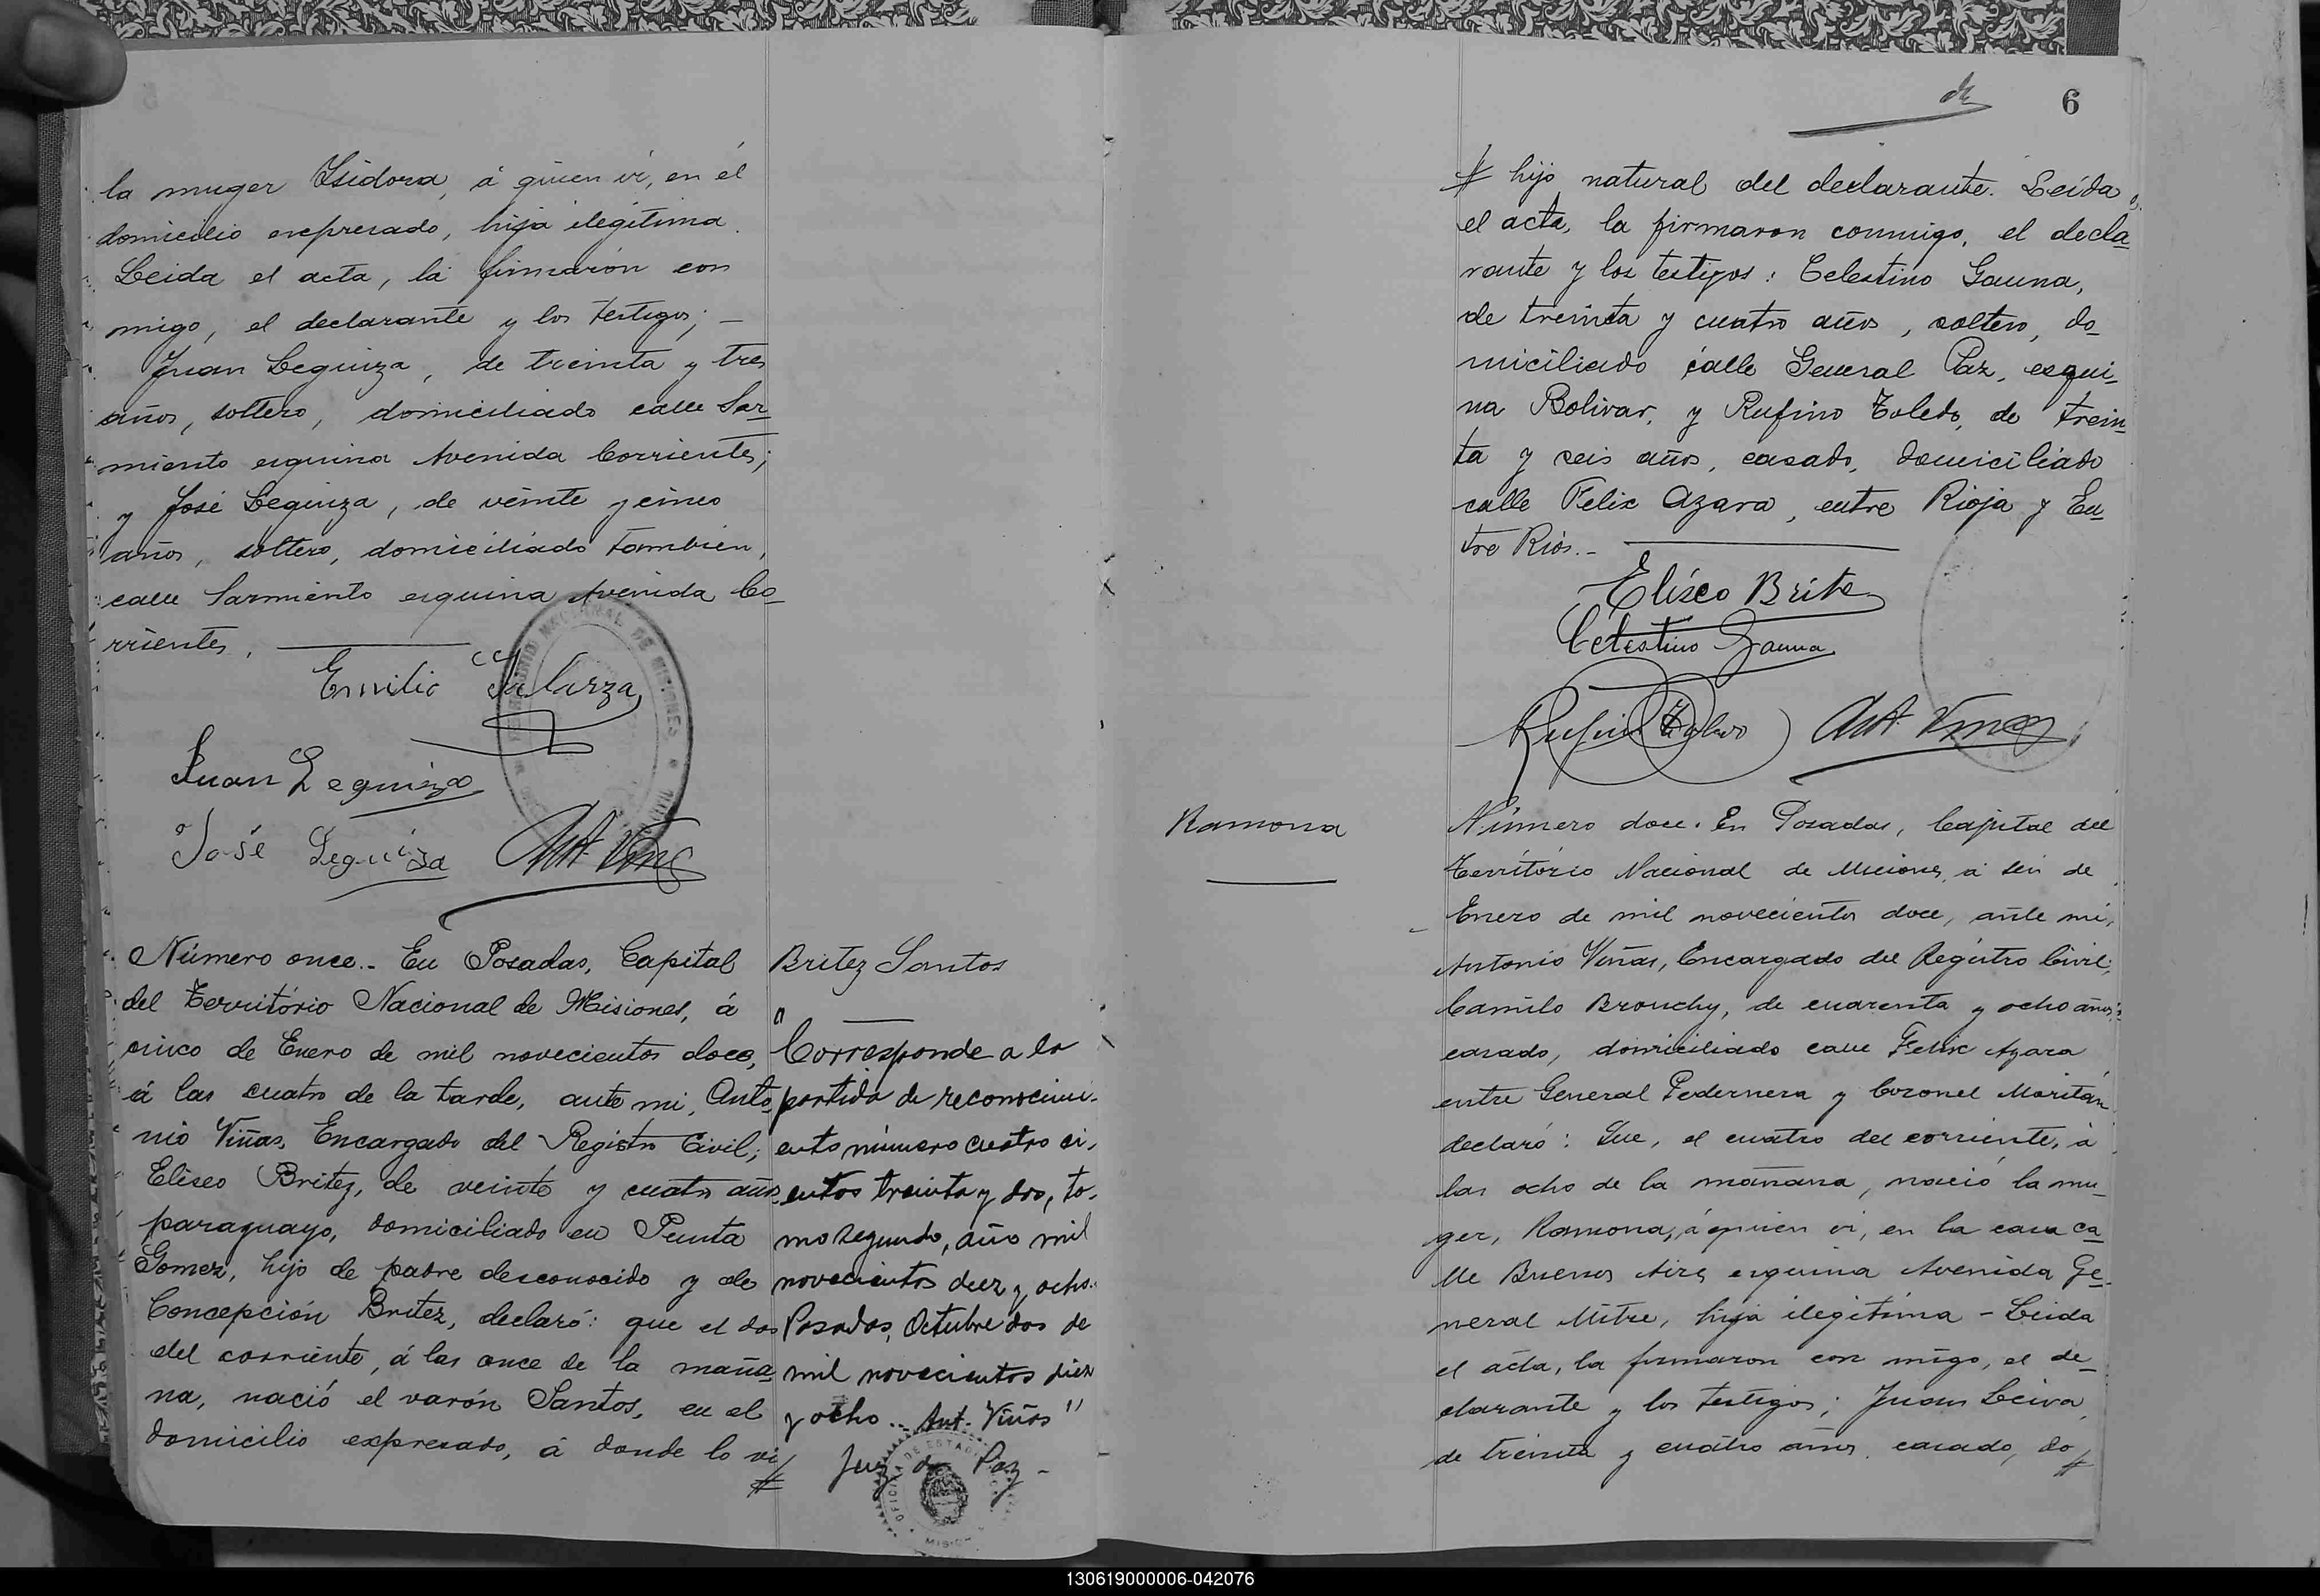 la muger Isidora, á quien ví, en él
domicilio expresado, hija ilegítima.
Leida el acta, la firmarón con
migo, el declarante y los testigos; —
Juan Leguiza, de treinta y tres
años, soltero, domiciliado calle Sar-
miento esquina Avenida Corrientes;
y José Leguiza, de veinte y cinco
años, soltero, domiciliado tambien,
calle Sarmiento esquina Avenida Co-
rrientes.
Emilio
Juan Leguiza
José Leguiza Ant. Viñas
Número once.- En Posadas, Capital
del Território Nacional de Misiones, á
cinco de Enero de mil novecientos doce,
á las cuatro de la tarde, ante mi, Anto-
nio Viñas, Encargado del Registro Civil;
Eliseo Britez, de veinte y cuatro años
paraguayo, domiciliado en Punta
Gomez, hijo de padre desconocido y de
Concepción Britez, declaró: que el dos
del corriente, á las once de la maña-
na, nació el varón Santos, en el
domicilio expresado, á donde lo vi
Britez Santos
" —
Corresponde a la
partida de reconocimi-
ento número cuatro ci-
entos treinta y dos, to-
mo segundo, año mil
novecientos diez y ocho.
Posadas, Octubre dos de
mil novecientos diez
y ocho.. Ant. Viñas "
Juez de Paz -
6
hijo natural del declarante. Leída
el acta, la firmaron conmigo, el decla-
rante y los testigos: Celestino Gauna,
de treinta y cuatro años, soltero, do-
miciliado calle General Paz, esqui-
na Bolivar, y Rufino Toledo, de trein-
ta y seis años, casado, domiciliado
calle Felix Azara, entre Rioja y En-
tre Rios.-
Eliseo Brite
Celestino Gauna
Rufino Toledo Ant. Viñas
Ramona
Número doce. En Posadas, Capital del
Território Nacional de Misiones, á seis de
Enero de mil novecientos doce, ante mi,
Antonio Viñas, Encargado del Registro Civil;
Camilo Bronchy, de cuarenta y ocho años,
casado, domiciliado calle Felix Azara
entre General Pedernera y Coronel Maritán
declaró: Que, el cuatro del corriente, á
las ocho de la mañana, nació la mu-
ger, Ramona, á quien vi, en la casa ca-
lle Buenos Aires esquina Avenida Ge-
neral Mitre, hija ilegitima - Leida
el acta, la firmaron con migo, el de-
clarante y los testigos; Juan Leiva,
de treinta y cuatro años, casado, do
130619000006-042076